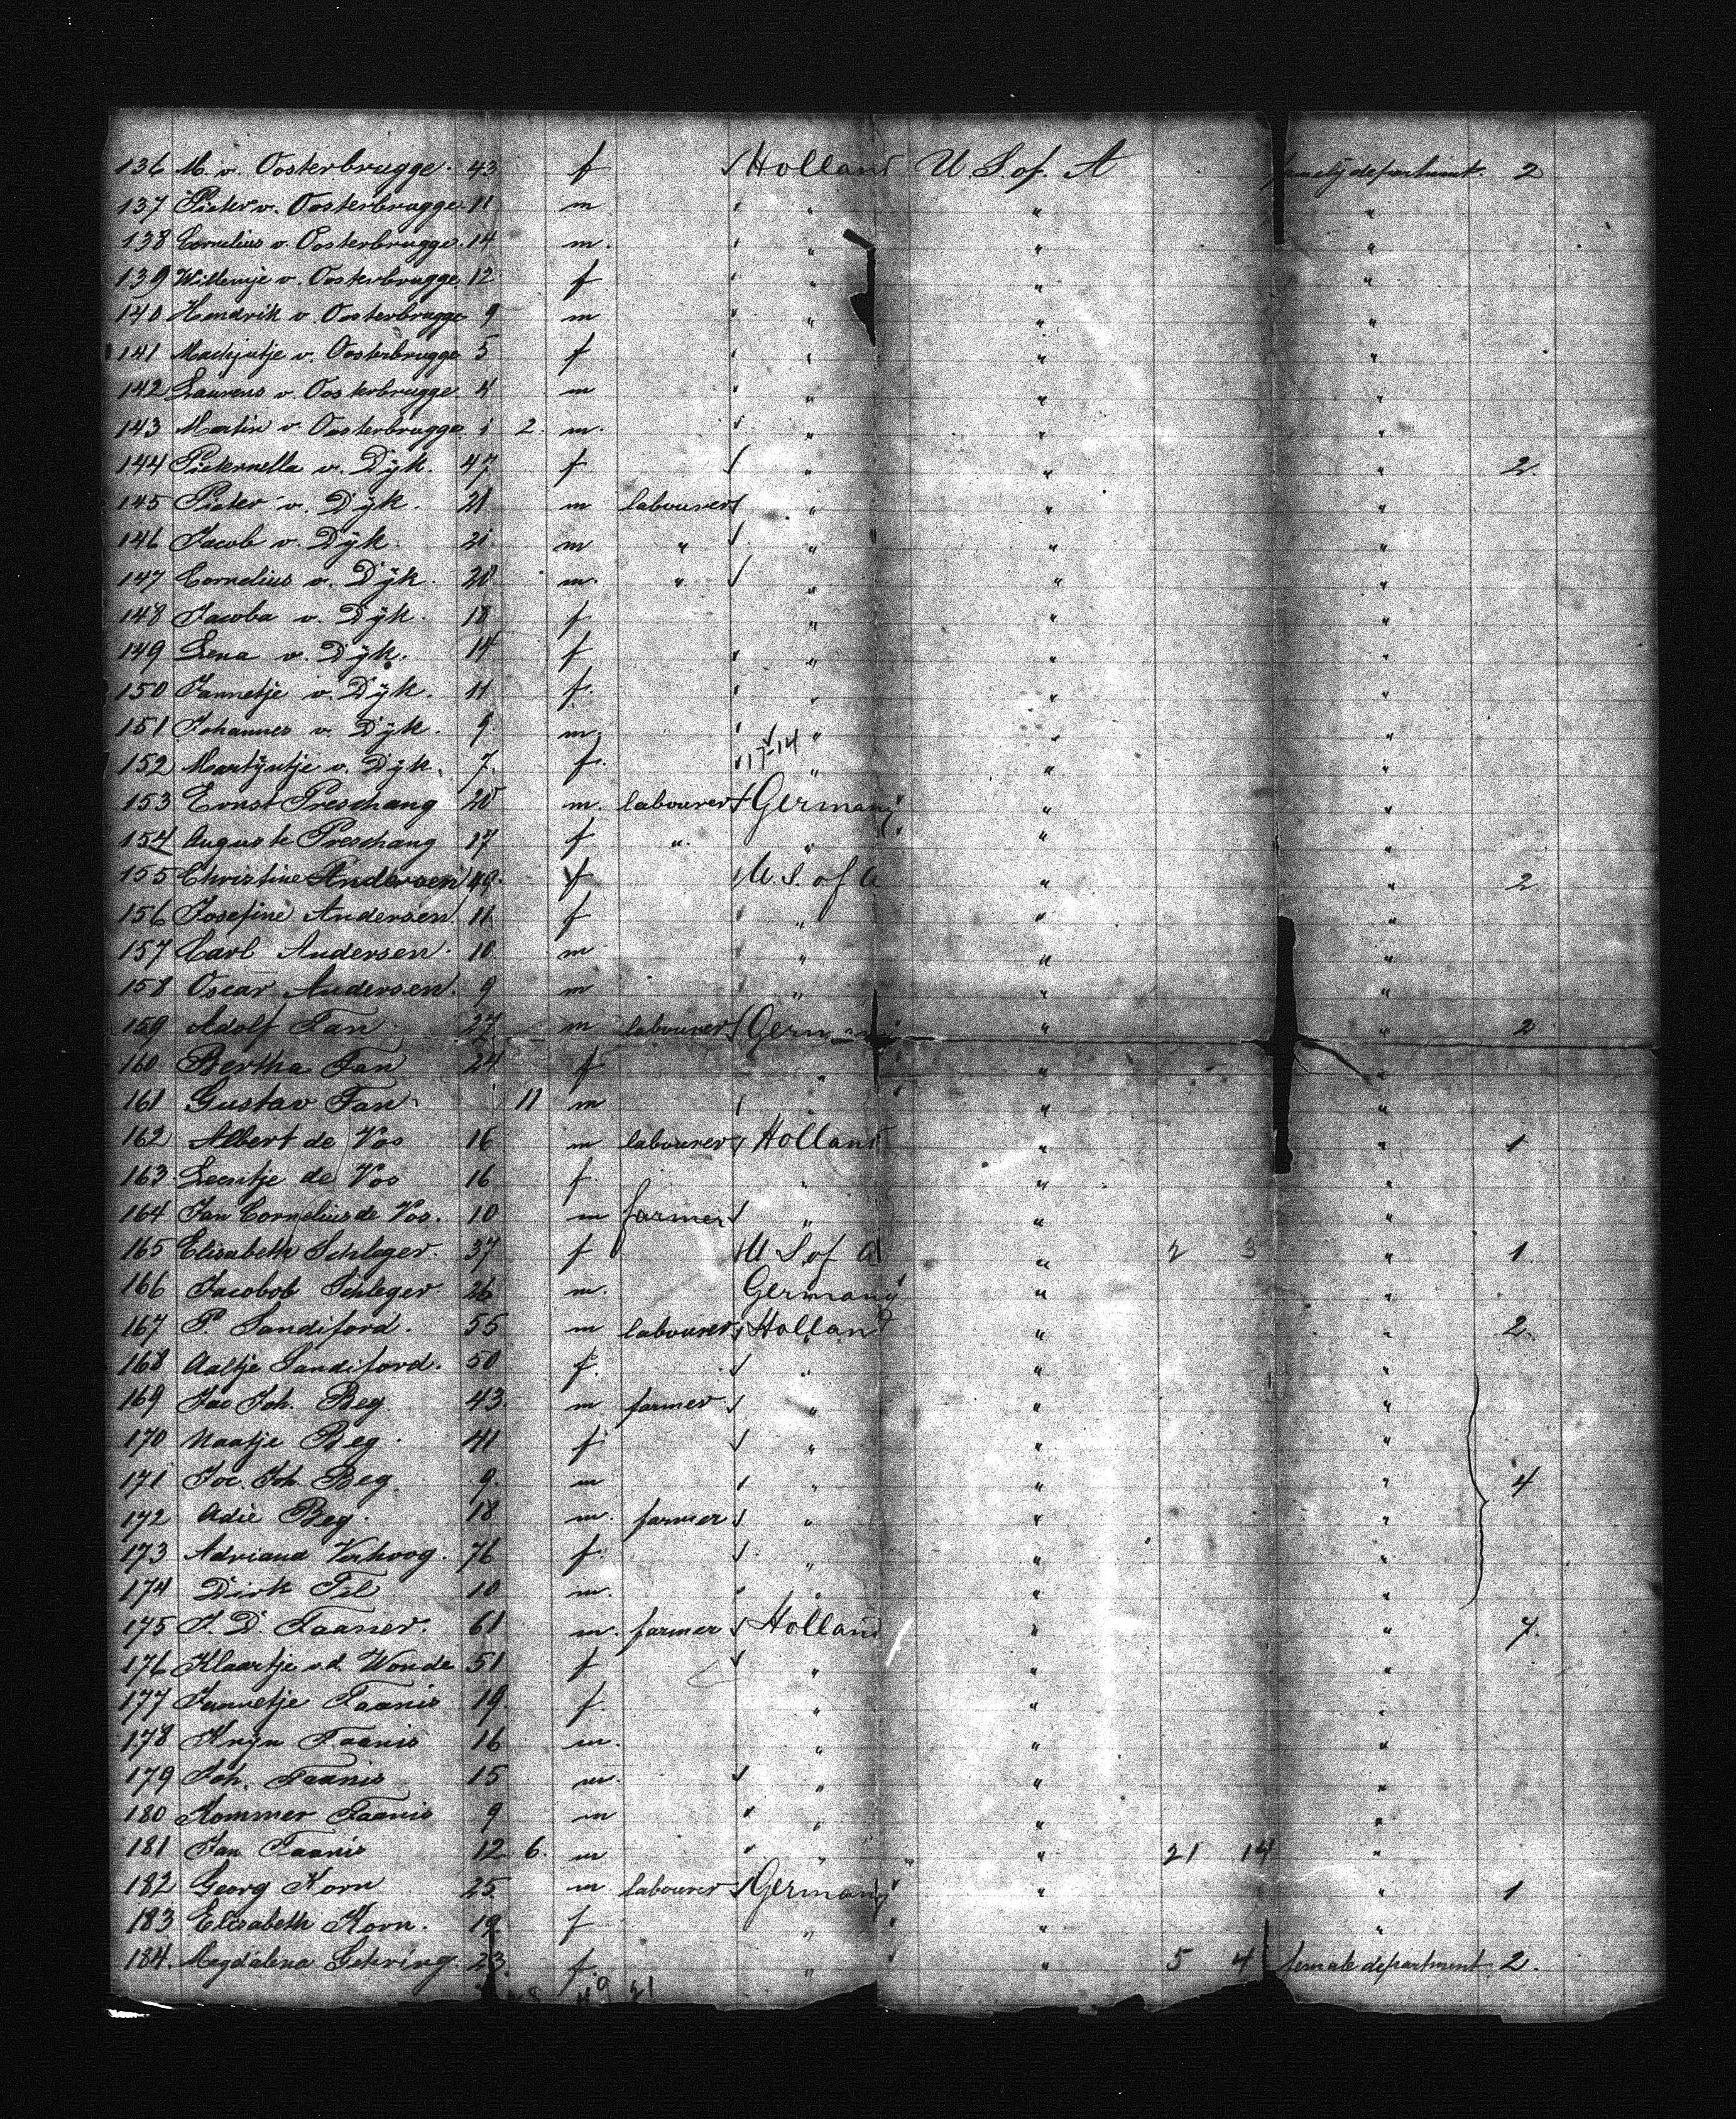 136 M. v. Oosterbrugge. 43 f Holland U.S of. A family department. 2
137 Pieter v. Oosterbrugge 11 m " " "
138 Cornelius v. Oosterbrugge. 14 m. " " "
139 Willemje v. Oosterbrugge 12 f " " "
140 Hendrik v. Oosterbrugge 9 m " " "
141 v. Oosterbrugge 5 f " " "
142 Laurens v. Oosterbrugge 4 m " " "
143 Martin v. Oosterbrugge 1 2. m. " " "
144 Pieternella v. Dÿk. 47 f " " " 2.
145 Pieter v. Dÿk. 21 m labourer " " "
146 Jacob v. Dÿk. 21 m " " " "
147 Cornelius v. Dÿk. 20 m. " " " "
148 Jacoba v. Dÿk. 18 f " " "
149 Lena v. Dÿk. 14 f " " "
150 Jannetje v. Dÿk. 11 f. " " "
151 Johannes v. Dÿk. 9. m. " " "
17-14
152 Martÿntje v. Dÿk. 7. f. " " "
153 Ernst Preschang 20 m. labourer Germany " "
154 Auguste Preschang 17 f " " " "
155 Christine Andersen 49. f U.S. of A " " 2
156 Josefine Andersen 11 f " " "
157 Carl Andersen. 10 m " " "
158 Oscar Andersen. 9 m " " "
159 Adolf Fan 27 m labourer Germany " " 2
160 Bertha Fan 24 f " " "
161 Gustav Fan 11 m " " "
162 Albert de Vos 16 m labourer Holland " " 1
163. Leentje de Vos 16 f. " " "
164 Jan Cornelius de Vos. 10 m farmer " " "
165 Elisabeth Schleger. 37 f U S of A " 2 3 " 1
166 Jacobob Schleger 26 m. Germany " "
167 P. Sandiford. 55 m labourer Holland " " 2.
168 Aaltje Sandiford. 50 f. " " "
169 Jac Joh. Beg 43. m farmer " " "
170 Naatje Beg. 41 f " " "
171 Joc. Joh. Beg 9. m " " " 4
172 Adie Beg. 18 m. farmer " " "
173 Adriana Verhoog. 76 f. " " "
174 Dirk Tel 10 m. " " "
175 J. D. Taaner. 61 m. farmer Holland " " 7.
176 Klaartje v.d. Wonde 51 f " " "
177 Jannetje Taanis 19. f. " " "
178 Krÿn Taanis 16 m. " " "
179 Joh. Taanis 15 m. " " "
180 Kommer Taanis 9 m " " "
181 Jan Taanis 12 6. m " " 21 14 "
182 Georg Korn 25 m labourer Germany " " 1
183 Elisabeth Korn. 19. f " " "
184. Magdalena Gehring. 23. f. " " 5 4 female department. 2.